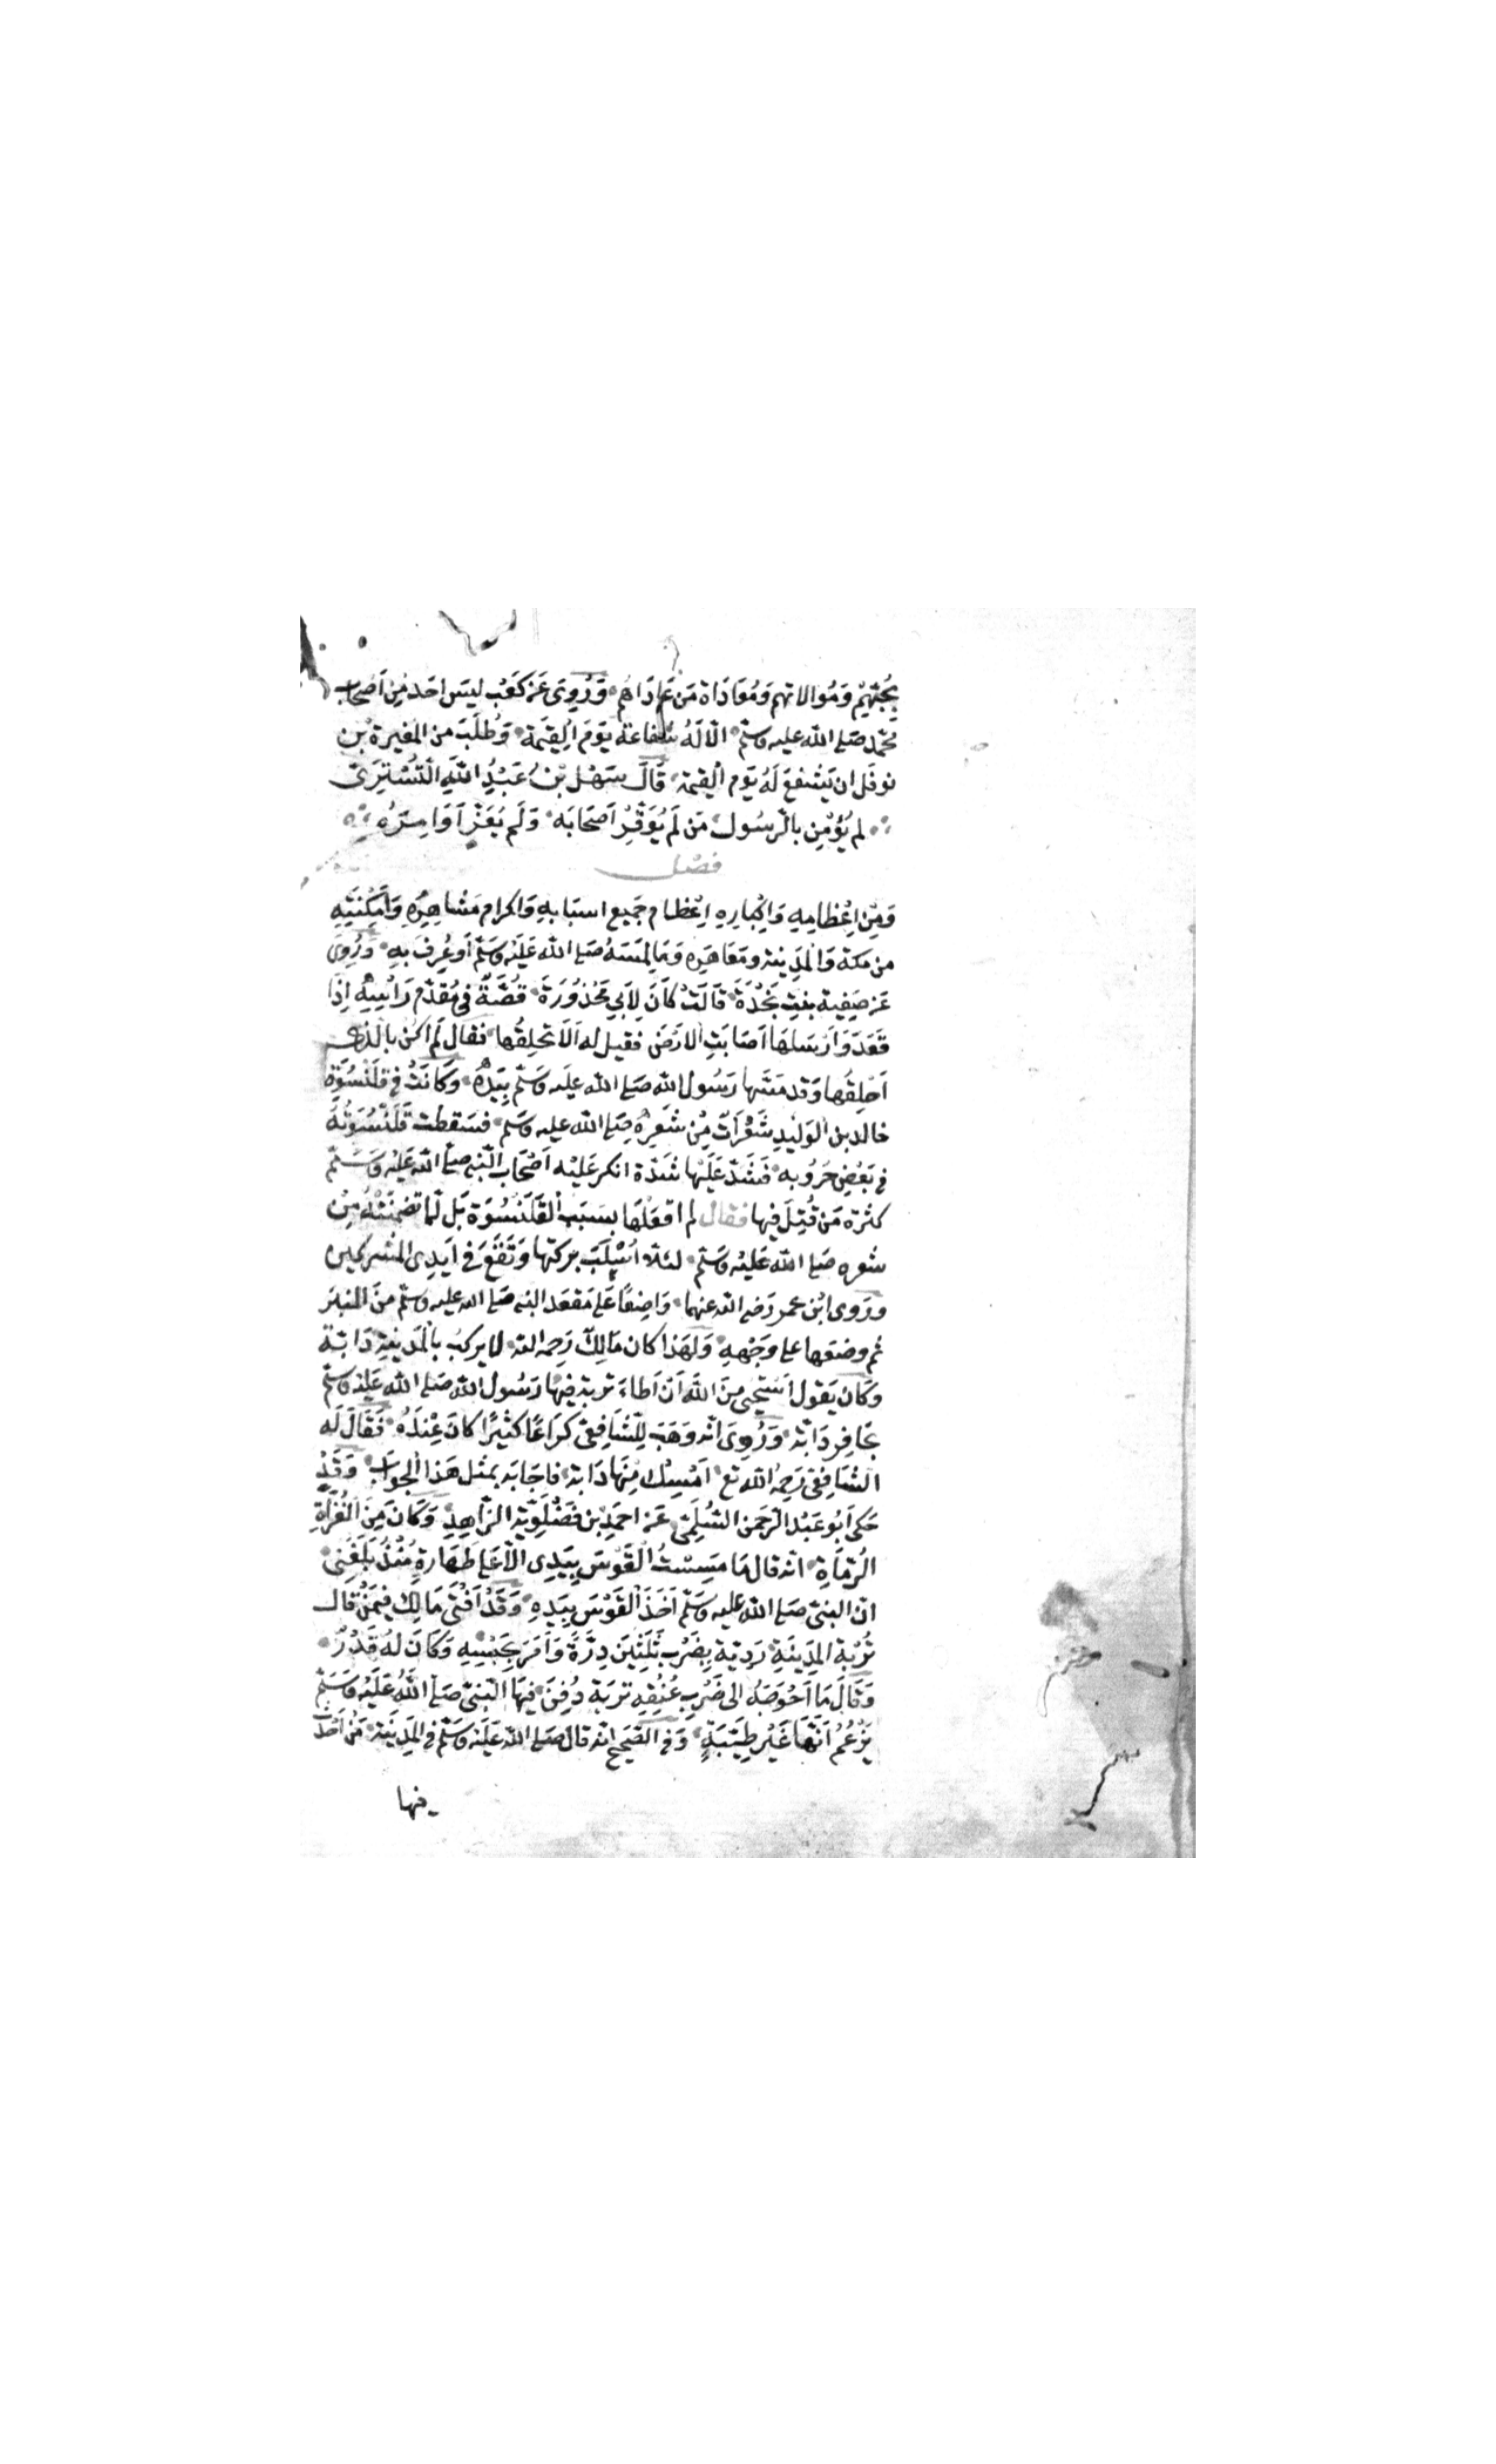 بحبّهم ومُوالاتهم ومُعَادَاة مَن عَادَاهُم وَرُوِىَ عَن كَعْب ليسَ احَد مِن اَصْحَاب
محمّد صَلى الله عليه وسلّم الّا لَهُ شفاعَة يَومَ القِيمَة وَطَلَبَ من المغيرة بن
نوفَل ان يَشْفعَ لَهُ يَوم القيمة قَالَ سَهْل بْنُ عَبْدِ اللهِ التُسْتَرِىّ
لم يُؤمِن بالرّسُول مَن لَم يُوَقِّرْ اَصْحَابَه وَلَم يُعَزِّز اَوَامِرَهُ
فصْل
وَمِن اِعْظَامِهِ وَاِكْبَارِهِ اِعْظام جَميع اسبَابهِ وَاكرام مَشَاهِدِهِ وَاَمْكِنَتِهِ
من مكة وَالمَدِينة ومَعَاهَدِه وَمَا لمسَهُ صَلى الله عَلَيْه وسَلّم اَوعُرِفَ بهِ وَرُوِىَ
عَن صَفِية بنتِ نَجْدَةَ قَالَتْ كَانَ لِاَبى مَحْذُورَةَ قُصّةٌ فى مُقدّم رَاْسِهِ اِذَا
قَعَدَ وَاَرْسَلهَا اَصَابَتِ الارْضَ فقيل له اَلَا تحلِقُها فقال لَم اكن بالذى
اَحْلِقُها وَقد مَسَّها رَسُول الله صَلى الله عليه وَسَلّم بِيَدِهِ وكَانَتْ فى قلَنْسُوَة
خالد بن الوَليدِ شَعْرَات مِن شَعَرِهِ صَلى الله عليه وسَلم فسَقطت قَلَنْسُوَتُهُ
فى بَعْضِ حرُوبه فشَدّ عَلَيْها شَدّة انكر عَلَيْه اَصْحَاب النّبى صَلى الله عَليْه وَسَلّم
كثرَة مَن قُتِلَ فيها فقال لم افعَلْهَا بسَبَب القَلَنْسُوَة بَل لمَا تضمنَتْهُ مِن
شعره صَلى الله عَليْه وسَلّم لئلّا اُسْلَبَ بركتها وَتَقَعَ فى اَيدِى المشركين
ورَوى ابْن عمر رَضى الله عنهما وَاضِعًا عَلى مَقعَد النبى صَلى الله عليه وسلّم منَ المنبر
ثم وضعَها على وَجْههِ وَلهَذا كان مَالِك رَحمه الله لا يركبُ بالمَدينةِ دَابّة
وَكَان يَقول اَسْتَحْيى منَ اللهِ اَن اَطَاءَ تربة فِيهَا رَسُول الله صَلى الله عَليْه وسَلّم
بحَافِر دَابّة وَرُوِىَ انّه وَهَبَ لِلشّافِعىّ كرَاعًا كثيْرًا كَانَ عِنْدَهُ فَقَالَ لَه
الشّافِعى رَحِمهُ الله تع اَمْسِك مِنْهَا دَابّة فاجَابَه بمثل هَذا الجوَاب وَقَد
حَكى اَبُو عَبْد الرّحمن السُّلَمِىّ عَن احمَد بْن فضْلَوَيْه الزّاهِد وَكانَ مِنَ الغُزَاةِ
الرُّمَاةِ انّه قال مَا مَسِسْتُ القَوْسَ بِيَدِى الّا عَلى طَهَارة مُنْذُ بَلَغَنى
انّ النبىّ صَلى الله عليه وسَلّم اَخَذَ القَوْسَ بيَدِهِ وَقَدْ اَفْتَى مَالِك فيمَن قَال
تُرْبة المَدِينَةِ رَدِيّة بِضَرْب ثَلَثِينَ دِرّةً وَاَمَرَ بِحَبْسِهِ وَكَانَ لهُ قَدْرٌ
وَقَالَ مَا اَحْوَجَهُ الى ضَرْبِ عُنُقِهِ تربَة دُفِنَ فيهَا النّبىّ صَلى اللهُ عَلَيْهِ وَسَلّم
يَزْعُمُ اَنّهَا غَيْر طَيّبَةٍ وَفى الصَّحِيح انّه قال صَلى الله عَلَيْه وَسَلّم فى المَدِينَةِ مَن اَحْدَثَ
فيها